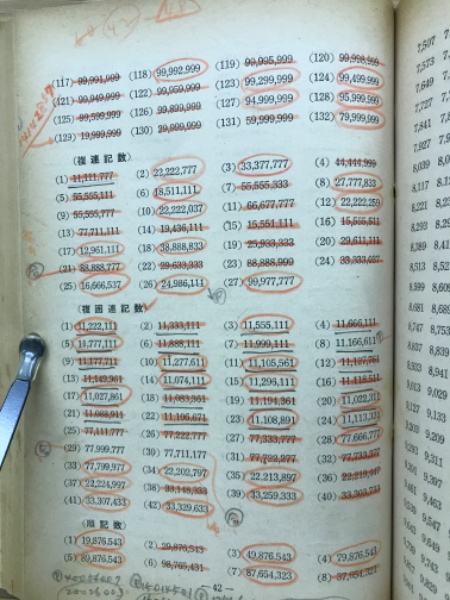 (117) 99,991,999 (118) 99,992,999 (119) 99,995,999 (120) 99,998,999
(121) 99,949,999 (122) 99,959,999 (123) 99,299,999 (124) 99,499,999
(125) 99,599,999 (126) 99,899,999 (127) 94,999,999 (128) 95,999,999
(129) 19,999,999 (130) 29,999,999 (131) 59,999,999 (132) 79,999,999
(複連記数)
(1) 11,111,777 (2) 22,222,777 (3) 33,377,777 (4) 44,444,999
(5) 55,555,111 (6) 18,511,111 (7) 55,555,333 (8) 27,777,833
(9) 55,555,777 (10) 22,222,037 (11) 66,677,777 (12) 22,222,259
(13) 77,711,111 (14) 19,436,111 (15) 15,551,111 (16) 15,555,511
(17) 12,961,111 (18) 38,888,833 (19) 25,933,333 (20) 29,611,111
(21) 88,888,777 (22) 29,633,333 (23) 88,888,999 (24) 33,333,037
(25) 16,666,537 (26) 24,986,111 (27) 99,977,777
(複囲連記数)
(1) 11,222,111 (2) 11,333,111 (3) 11,555,111 (4) 11,666,111
(5) 11,777,111 (6) 11,888,111 (7) 11,999,111 (8) 11,166,611
(9) 11,177,711 (10) 11,277,611 (11) 11,105,561 (12)
(13) 11,149,961 (14) 11,074,111 (15) 11,296,111 (16) 11,118,511
(17) 11,027,861 (18) 11,083,361 (19) 11,194,361 (20) 11,022,311
(21) 11,088,911 (22) 11,196,671 (23) 11,108,891 (24) 11,113,331
(25) 77,111,777 (26) 77,222,777 (27) 77,333,777 (28) 77,666,777
(29) 77,999,777 (30) 77,711,177 (31) 77,722,277 (32) 77,733,377
(33) 77,799,977 (34) 22,202,797 (35) 22,213,897 (36)
(37) 22,224,997 (38) 33,148,933 (39) 33,259,333 (40) 33,303,733
(41) 33,307,433 (42) 33,329,633
(順記数)
(1) 19,876,543 (2) 29,876,543 (3) 49,876,543 (4) 79,876,543
(5) 89,876,543 (6) 98,765,431 (7) 87,654,323 (8) 87,654,321
— 42 —